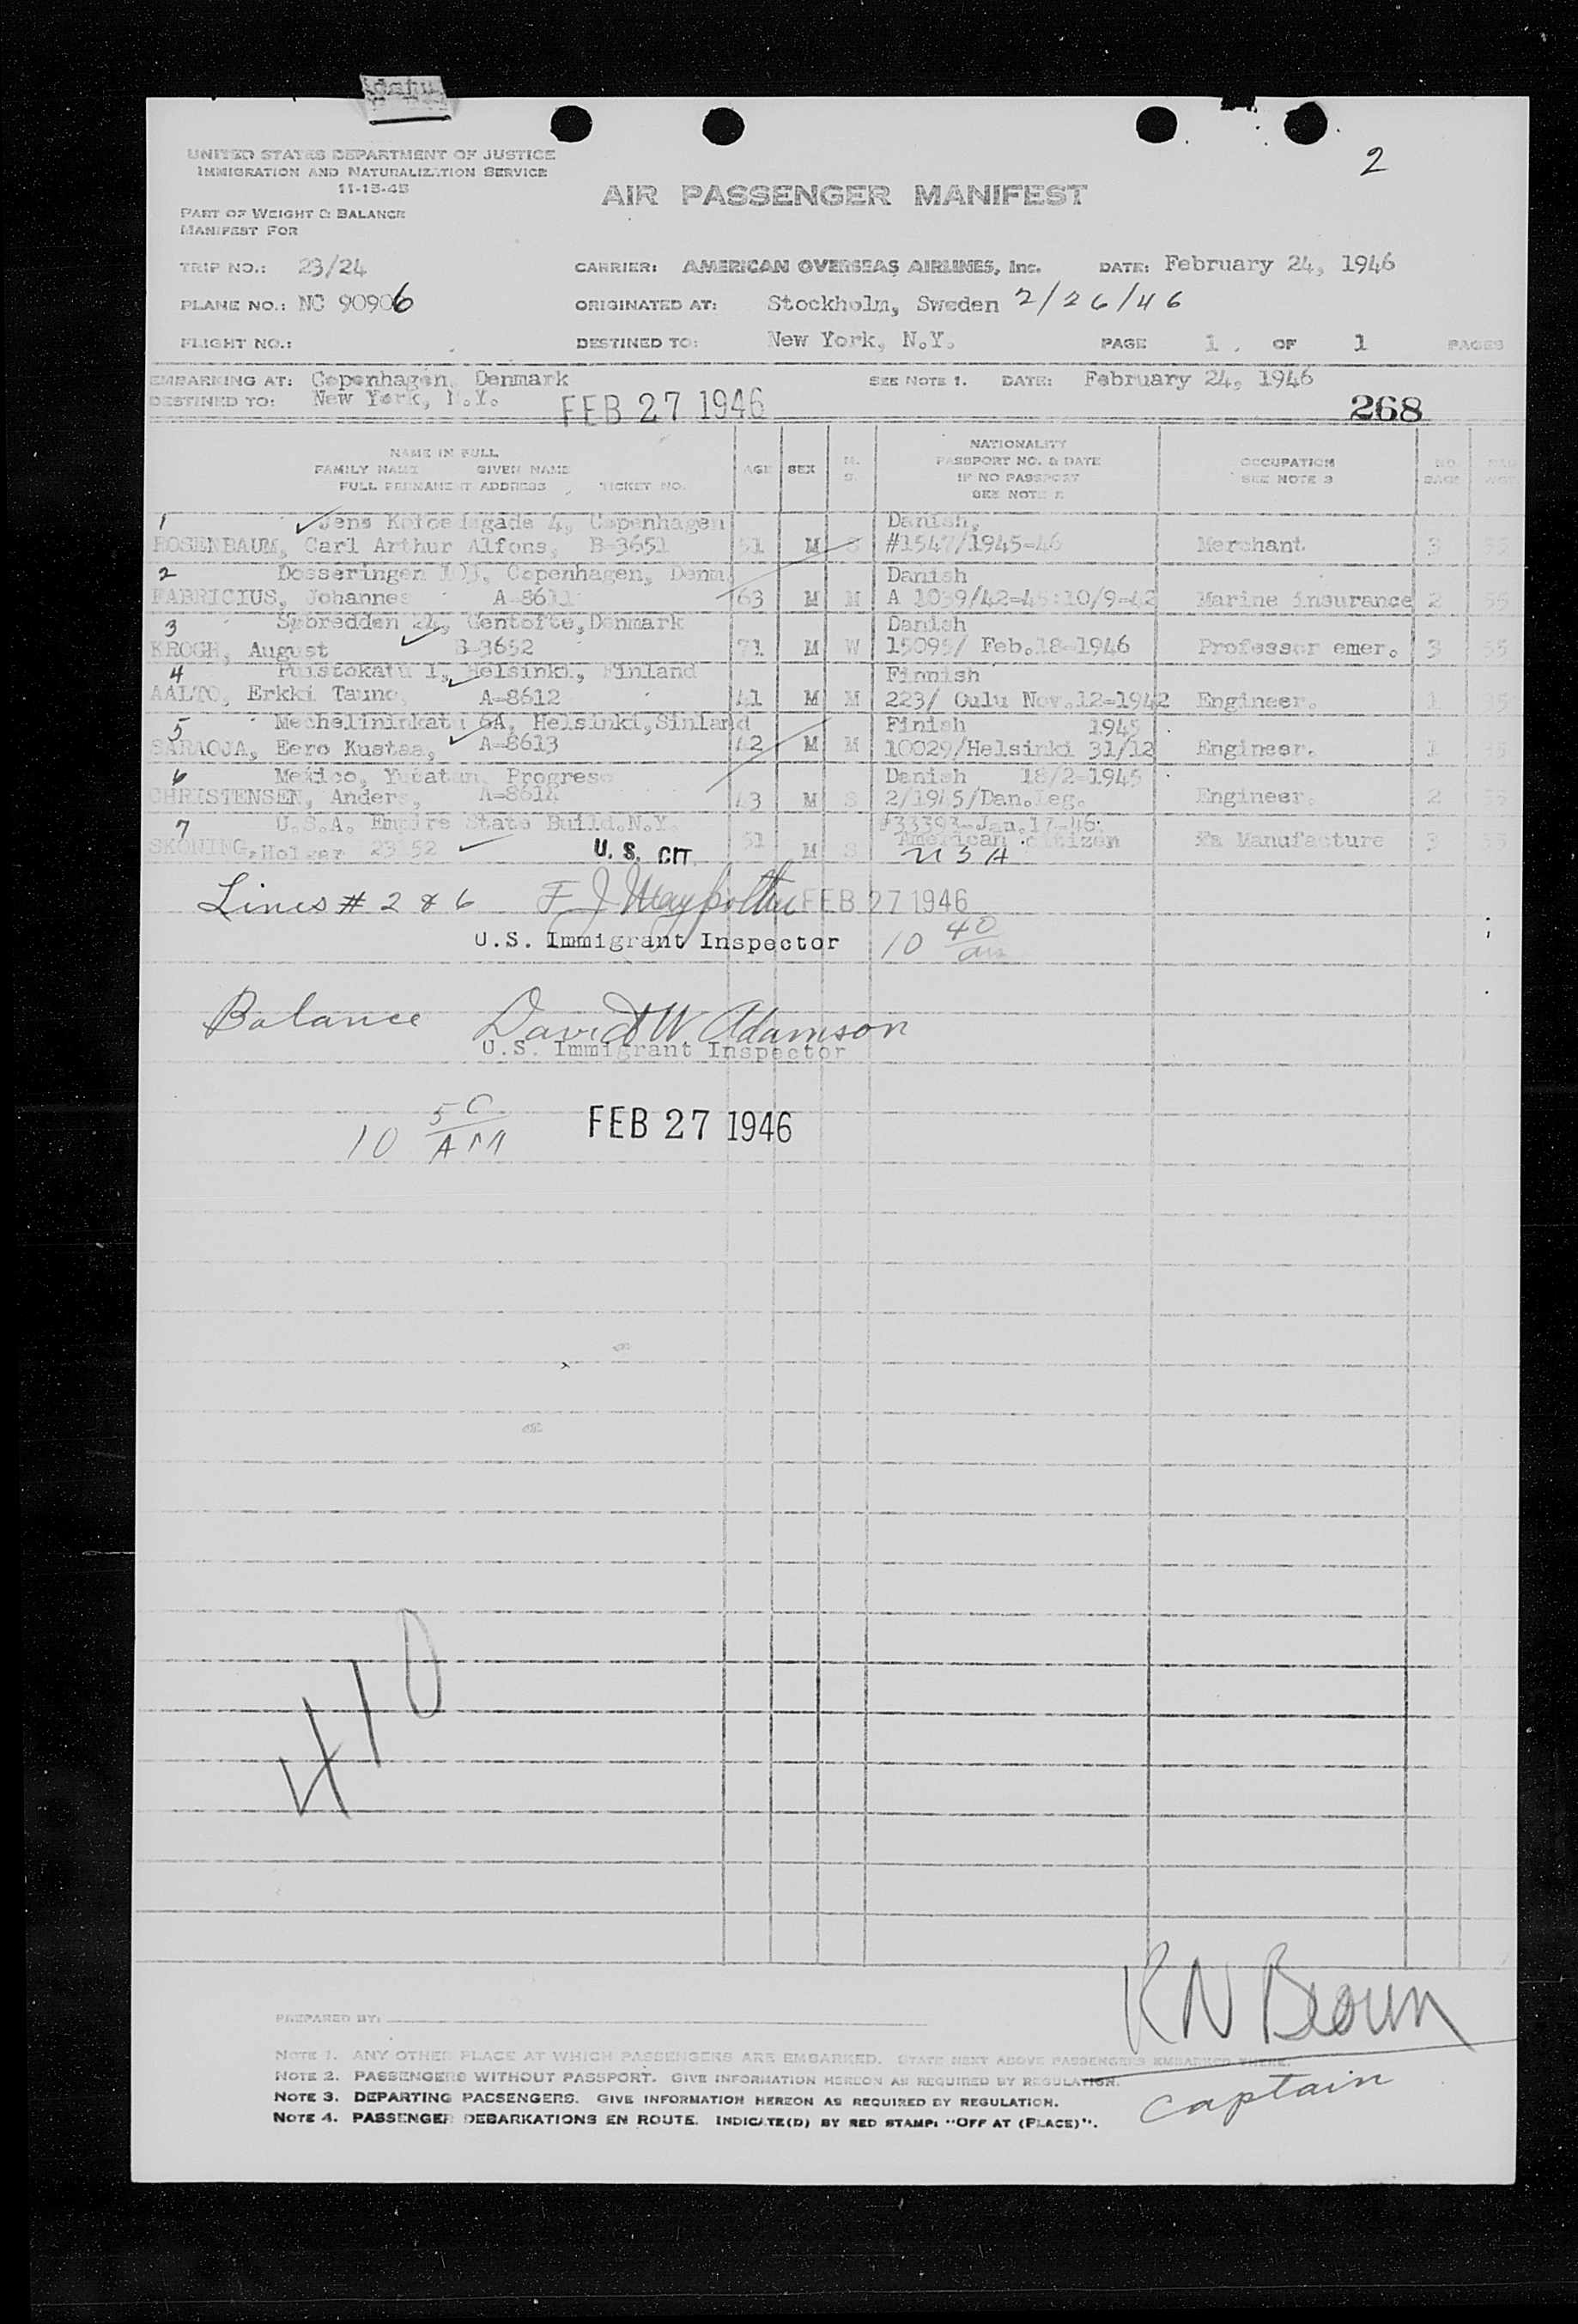 2
UNITED STATES DEPARTMENT OF JUSTICE
IMMIGRATION AND NATURALIZATION SERVICE
11-15-45
AIR PASSENGER MANIFEST
PART OF WEIGHT & BALANCE
MANIFEST FOR
TRIP NO.: 23/24 CARRIER: AMERICAN OVERSEAS AIRLINES, Inc. DATE: February 24, 1946
PLANE NO.: NC 90906 ORIGINATED AT: Stockholm, Sweden 2/26/46
FLIGHT NO.: DESTINED TO: New York, N.Y. PAGE 1 OF 1 PAGES
EMBARKING AT: Copenhagen, Denmark SEE NOTE 1. DATE: February 24, 1946
DESTINED TO: New York, N.Y. FEB 27 1946 268
NAME IN FULL
FAMILY NAME GIVEN NAME
FULL PERMANENT ADDRESS TICKET NO.
AGE SEX M. S.
NATIONALITY
PASSPORT NO. & DATE
IF NO PASSPORT
SEE NOTE 2
OCCUPATION
SEE NOTE 3
NO. BAGS
1 Jens 4, Copenhagen Danish,
ROSENBAUM, Carl Arthur Alfons, B-3651 51 M S #1547/1945-46 Merchant 3 55
2 Dosseringen Copenhagen, Denm. Danish
FABRICIUS, Johannes A-8611 63 M M A 1039/42-45:10/9-42 Marine insurance 2 55
3 Gentofte, Denmark Danish
KROGH, August B-3652 71 M W 15095/ Feb.18-1946 Professor emer. 3 55
4 Puistokatu 1, Helsinki, Finland Finnish
AALTO, Erkki Tauno, A-8612 41 M M 223/ Oulu Nov.12-1942 Engineer. 1 35
5 Mechelininkatu 6A, Helsinki, Sinland Finish 1945
SARAOJA, Eero Kustaa, A-8613 42 M M 10029/Helsinki 31/12 Engineer. 1 35
6 Mexico, Yucatan, Progreso Danish 18/2-1945
CHRISTENSEN, Anders, A-8614 43 M S 2/1945/Dan.Leg. Engineer. 2 55
7 U.S.A. Empire State Build.N.Y. #33393-Jan.17-46.
Holger 23 52 U. S. CIT. 51 M S American citizen Manufacture 3 55
USA
Lines # 2 & 6 FEB 27 1946
U.S. Immigrant Inspector 10 40 am
Balance David W Adamson
U.S. Immigrant Inspector
10 50 AM FEB 27 1946
410
RN Brown
PREPARED BY:
NOTE 1. ANY OTHER PLACE AT WHICH PASSENGERS ARE EMBARKED. STATE NEXT ABOVE PASSENGERS EMBARKED THERE.
NOTE 2. PASSENGERS WITHOUT PASSPORT. GIVE INFORMATION HEREON AS REQUIRED BY REGULATION.
Captain
NOTE 3. DEPARTING PASSENGERS. GIVE INFORMATION HEREON AS REQUIRED BY REGULATION.
NOTE 4. PASSENGER DEBARKATIONS EN ROUTE. INDICATE(D) BY RED STAMP: "OFF AT (PLACE)".